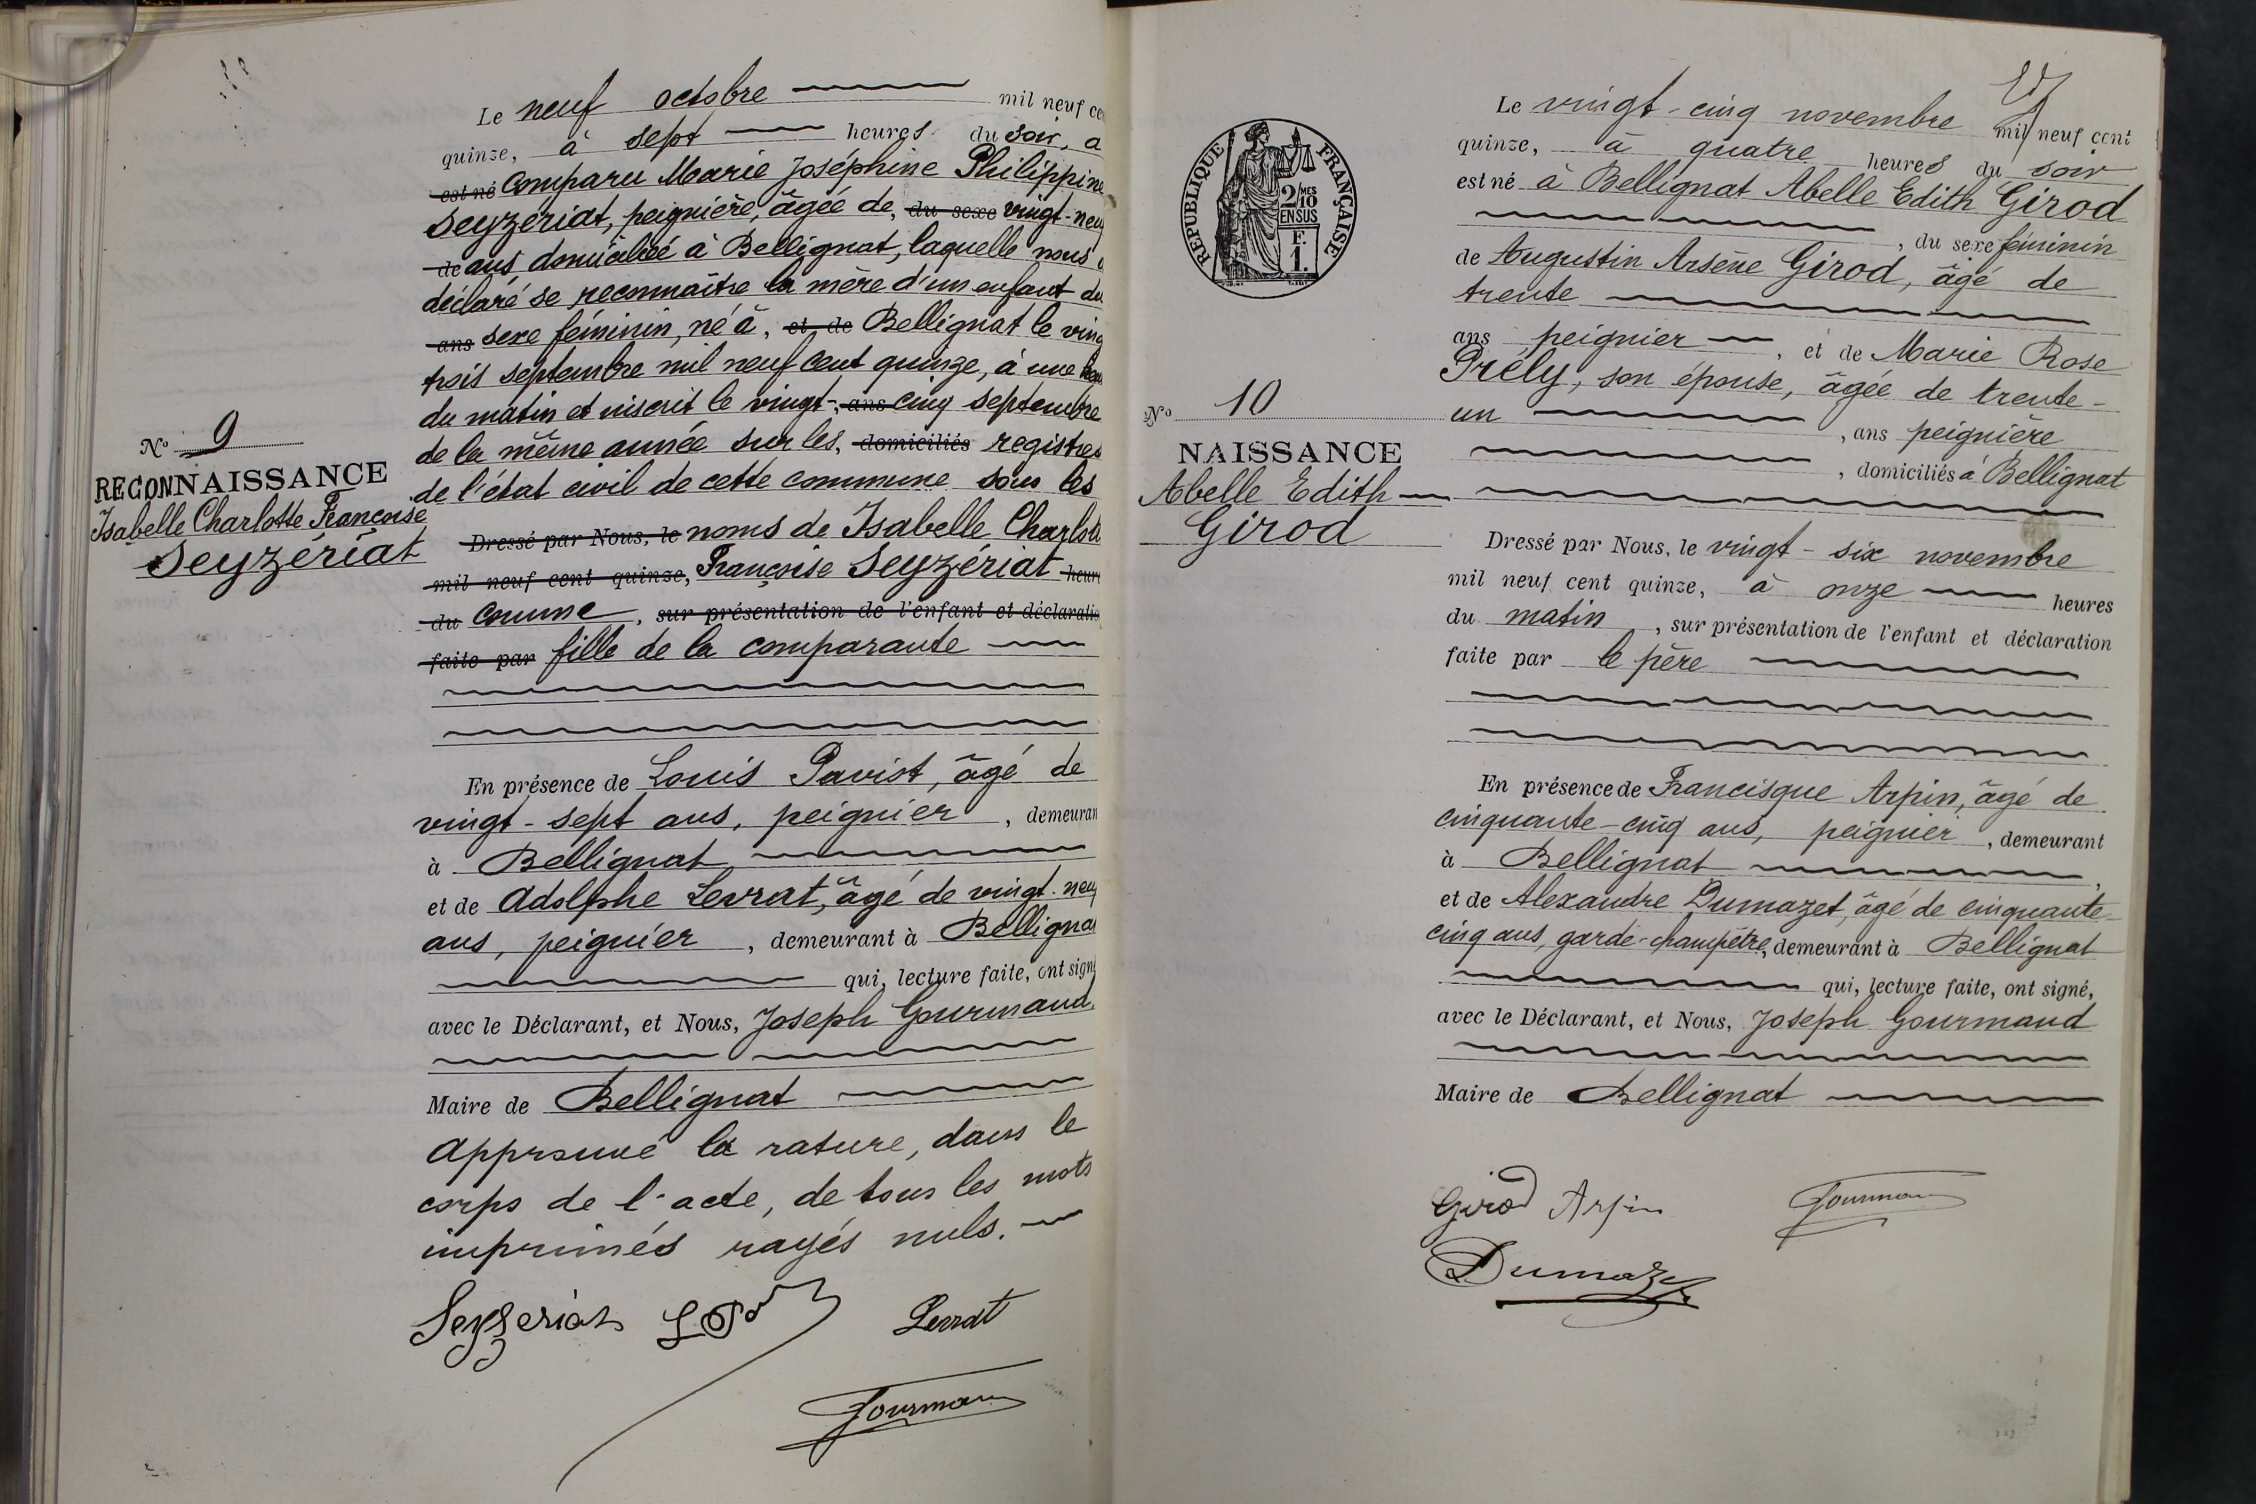 Le neuf octobre mil neuf ce
quinze, à sept heures du soir, a
est né comparu Marie Joséphine Philippine
Seyzériat, peignière, âgée de, du sexe vingt-neuf
de ans domiciliée à Bellignat, laquelle nous a
déclaré se reconnaître la mère d'un enfant du
ans sexe féminin, né à, et de Bellignat le ving
trois septembre mil neuf cent quinze, à une heu
du matin et inscrit le vingt-, ans cinq septembre
de la même année sur les, domiciliés registres
de l'état civil de cette commune sous les
Dressé par Nous, le noms de Isabelle Charlott
mil neuf cent quinze, Françoise Seyzériat heur
du comme, sur présentation de l'enfant et déclaratio
faite par fille de la comparante
En présence de Louis Pavist, âgé de
vingt-sept ans, peignier, demeuran
à Bellignat
et de Adolphe Levrat, âgé de vingt-neuf
ans, peignier, demeurant à Bellignat
qui, lecture faite, ont signé
avec le Déclarant, et Nous, Joseph Gourmand,
Maire de Bellignat
Approuvé la rature, dans le
corps de l'acte, de tous les mots
imprimés rayés nuls.
Seyzeriat Levrat
Gourman
No 9
RECONNAISSANCE
Isabelle Charlotte Françoise
Seyzériat
RÉPUBLIQUE FRANÇAISE
2 MES
10
EN SUS
F.
1.
No 10
NAISSANCE
Abelle Edith
Girod
Le vingt-cinq novembre mil neuf cent
quinze, à quatre heures du soir
est né à Bellignat Abelle Edith Girod
, du sexe féminin
de Augustin Arsène Girod, âgé de
trente
ans peignier, et de Marie Rose
Prély, son épouse, âgée de trente-
un
, ans peignière
, domiciliés à Bellignat
Dressé par Nous, le vingt-six novembre
mil neuf cent quinze, à onze heures
du matin, sur présentation de l'enfant et déclaration
faite par le père
En présence de Francisque Arpin, âgé de
cinquante-cinq ans, peignier, demeurant
à Bellignat,
et de Alexandre Dumazet, âgé de cinquante-
cinq ans, garde-champêtre, demeurant à Bellignat
qui, lecture faite, ont signé,
avec le Déclarant, et Nous, Joseph Gourmand
Maire de Bellignat
Girod Arpin Gourman
Dumazet